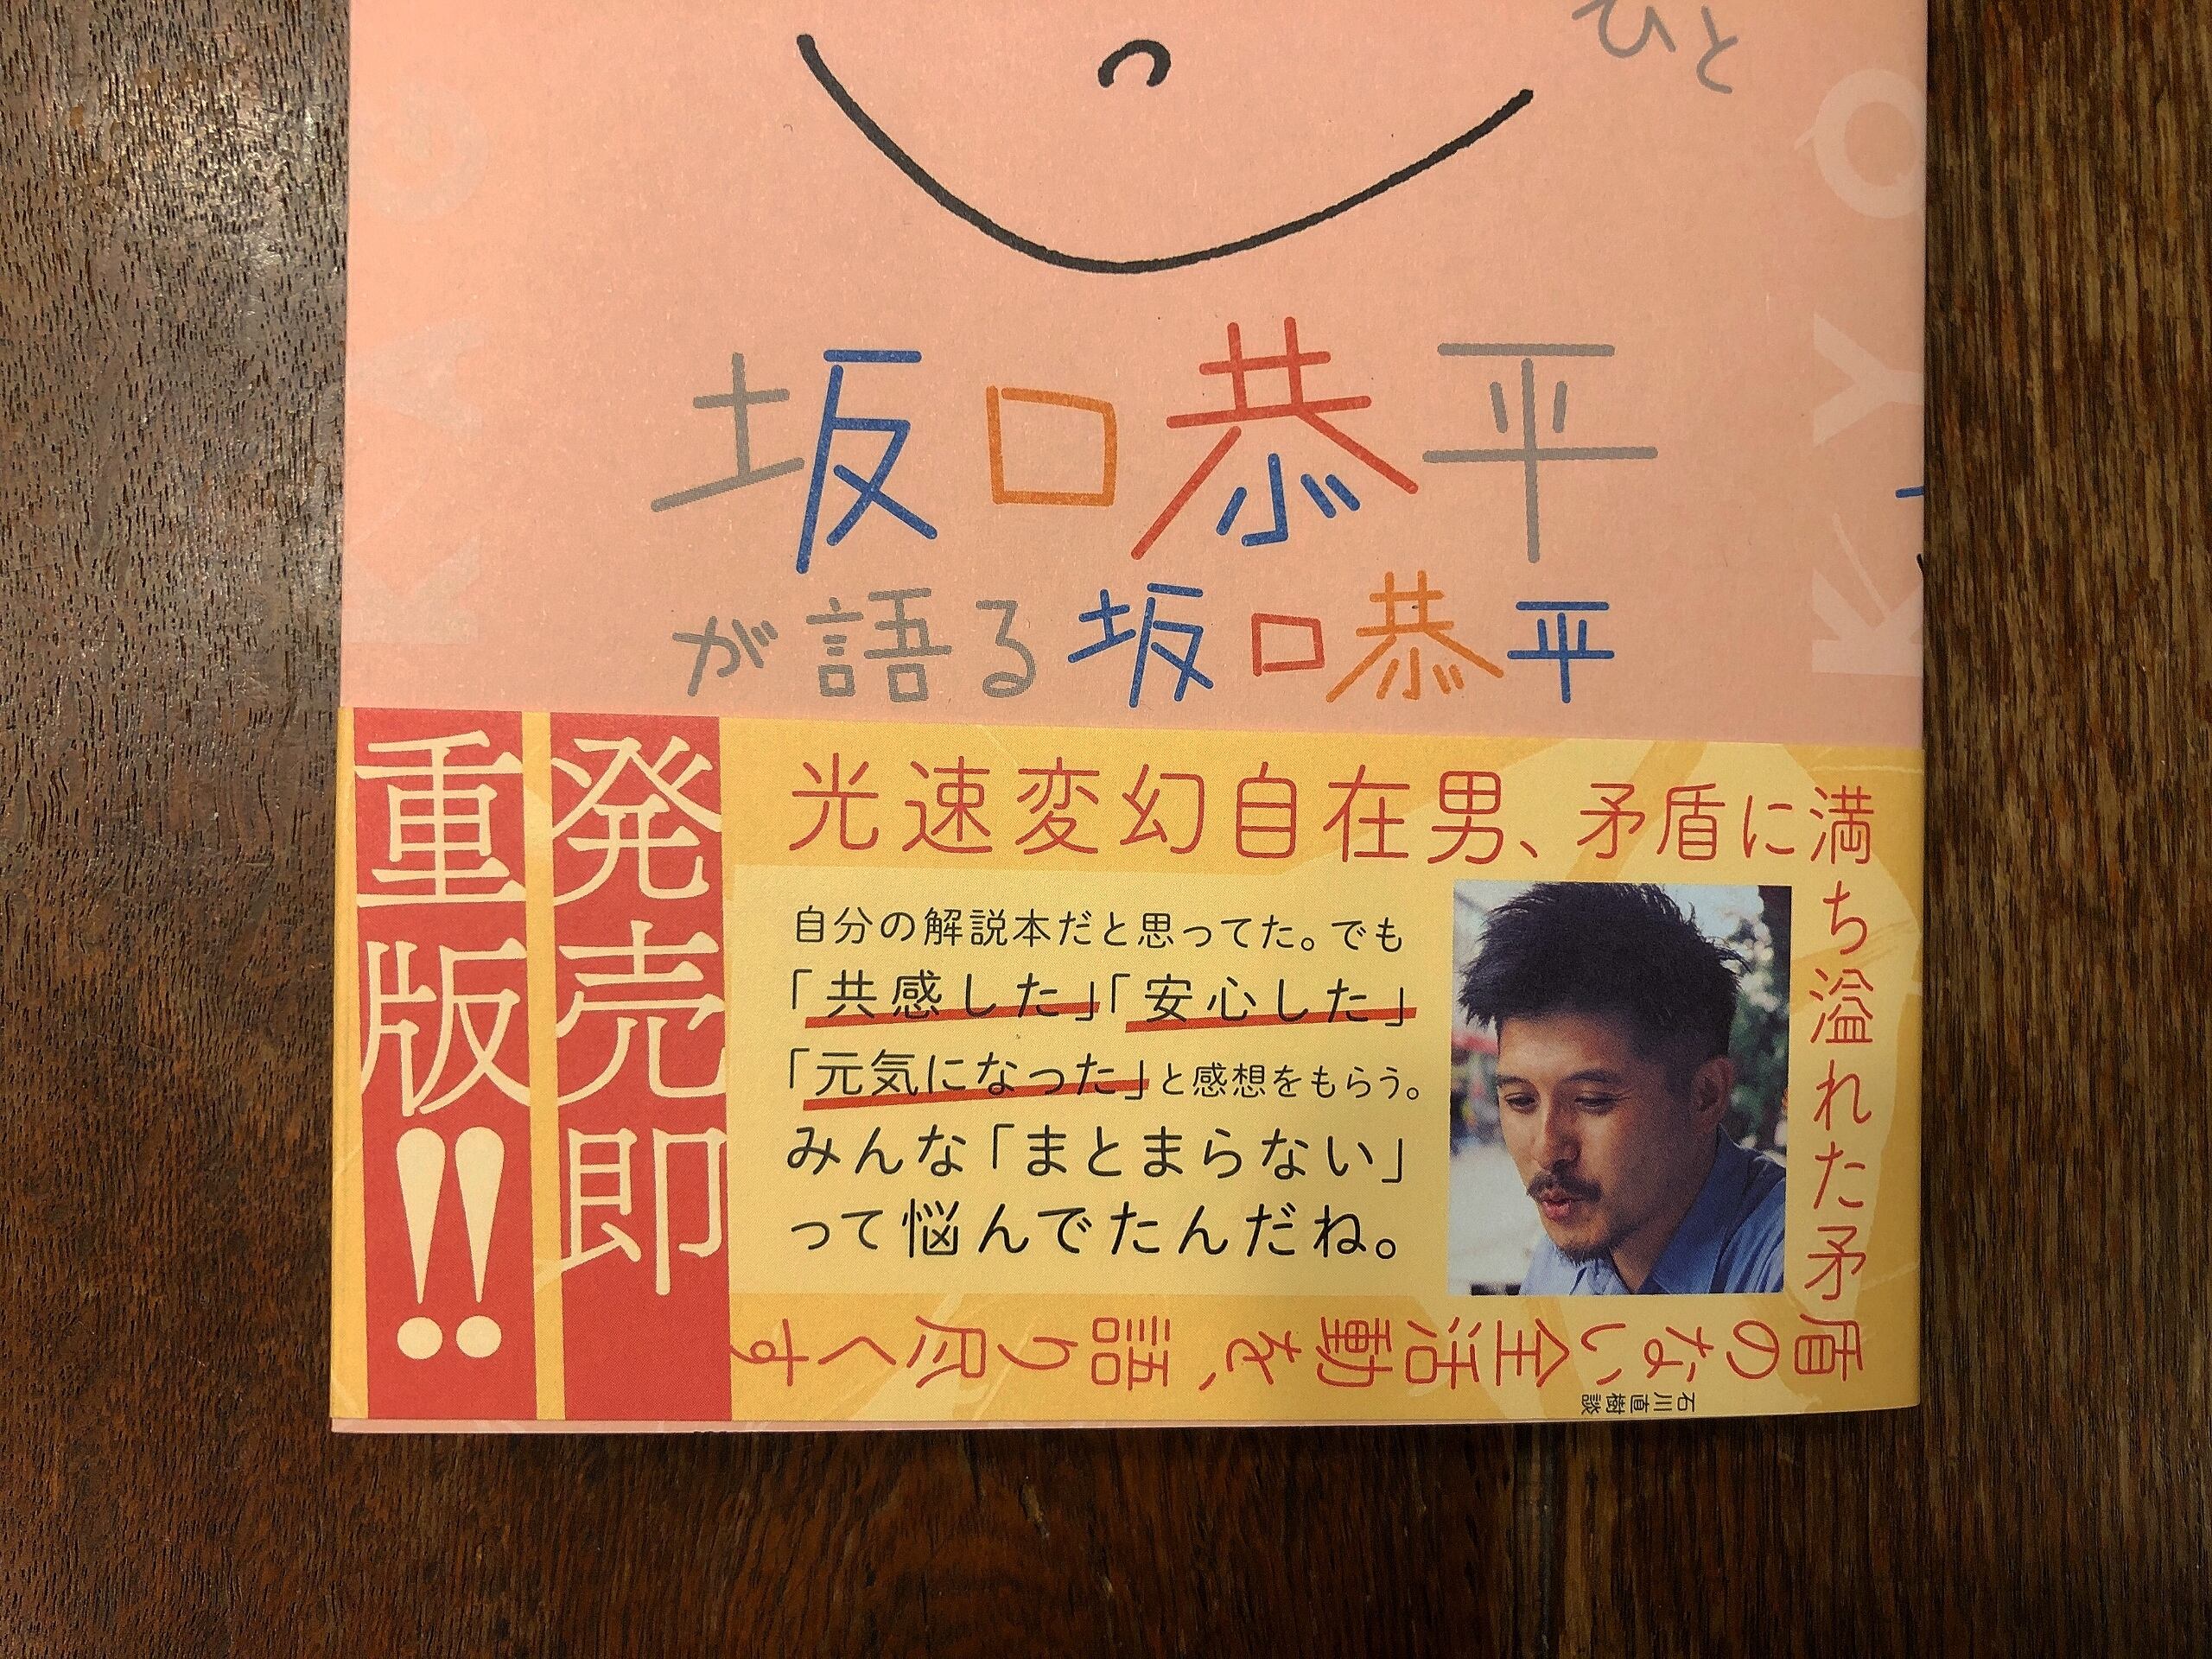 ひと
坂口恭平
が語る坂口恭平
KAG
KYO
発売即
重版!!
光速変幻自在男、矛盾に満ち溢れた矛盾のない全活動を、語り尽くす
自分の解説本だと思ってた。でも
「共感した」「安心した」
「元気になった」と感想をもらう。
みんな「まとまらない」
って悩んでたんだね。
石川直樹 談